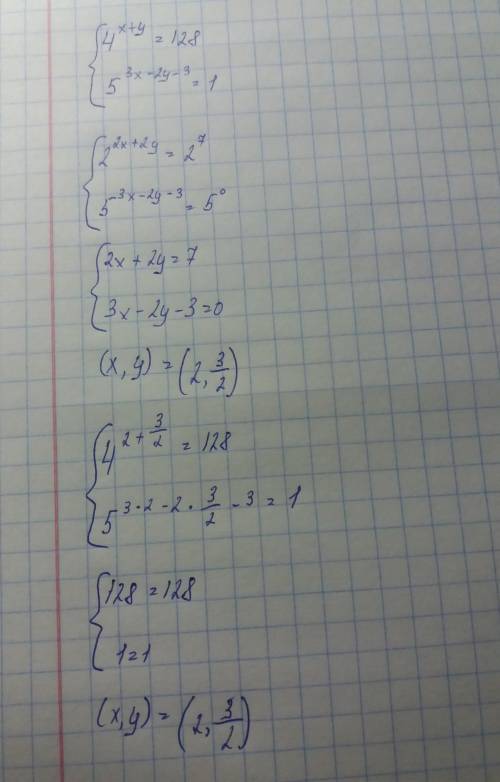 4^{x+y} = 128
5^{3x-2y-3} = 1
2^{2x+2y} = 2^7
5^{3x-2y-3} = 5^0
2x + 2y = 7
3x - 2y - 3 = 0
(x, y) = (2, 3/2)
4^{2 + 3/2} = 128
5^{3·2 - 2·3/2 - 3} = 1
128 = 128
1 = 1
(x, y) = (2, 3/2)